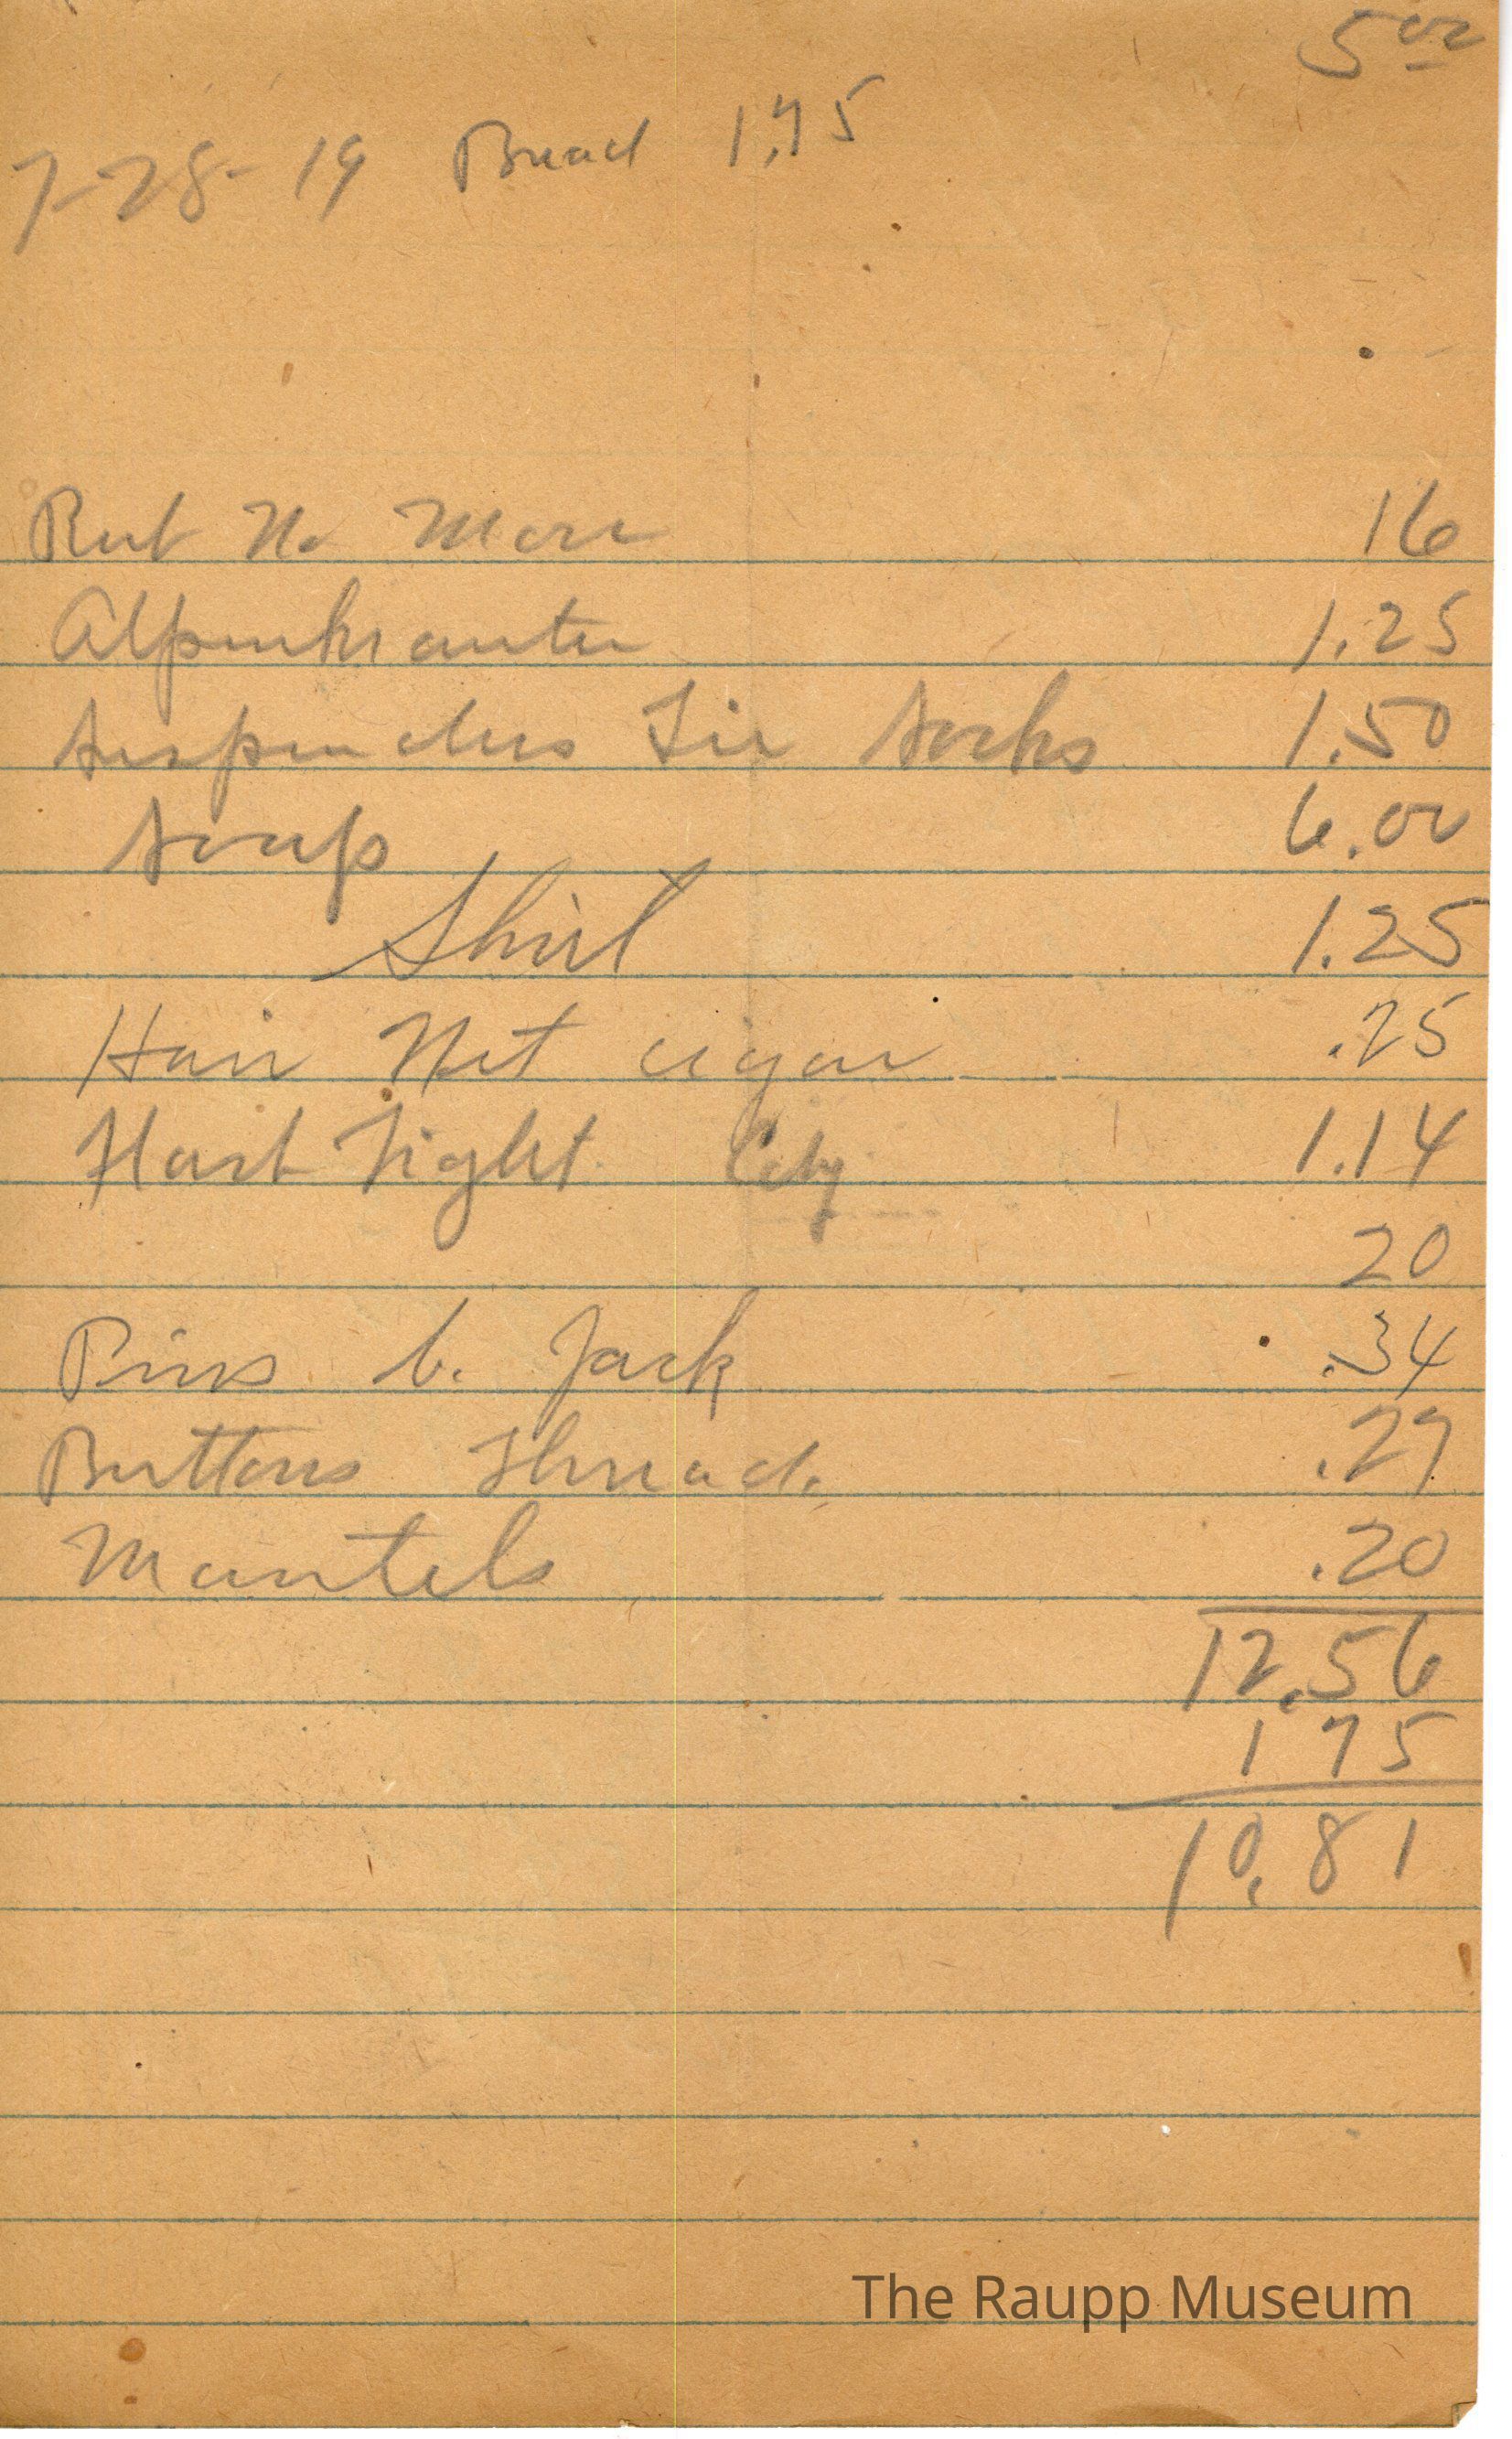 5 00
7-28-19 Bread 1.75
Rub No More 16
Alpenkrauter 1.25
Suspenders Tie Socks 1.50
Soap 6.00
Shirt 1.25
Hair Net cigar .25
1.14
20
Pins b. Jack .34
Buttons Thread. .27
Mantels .20
12.56
1 75
10.81
The Raupp Museum